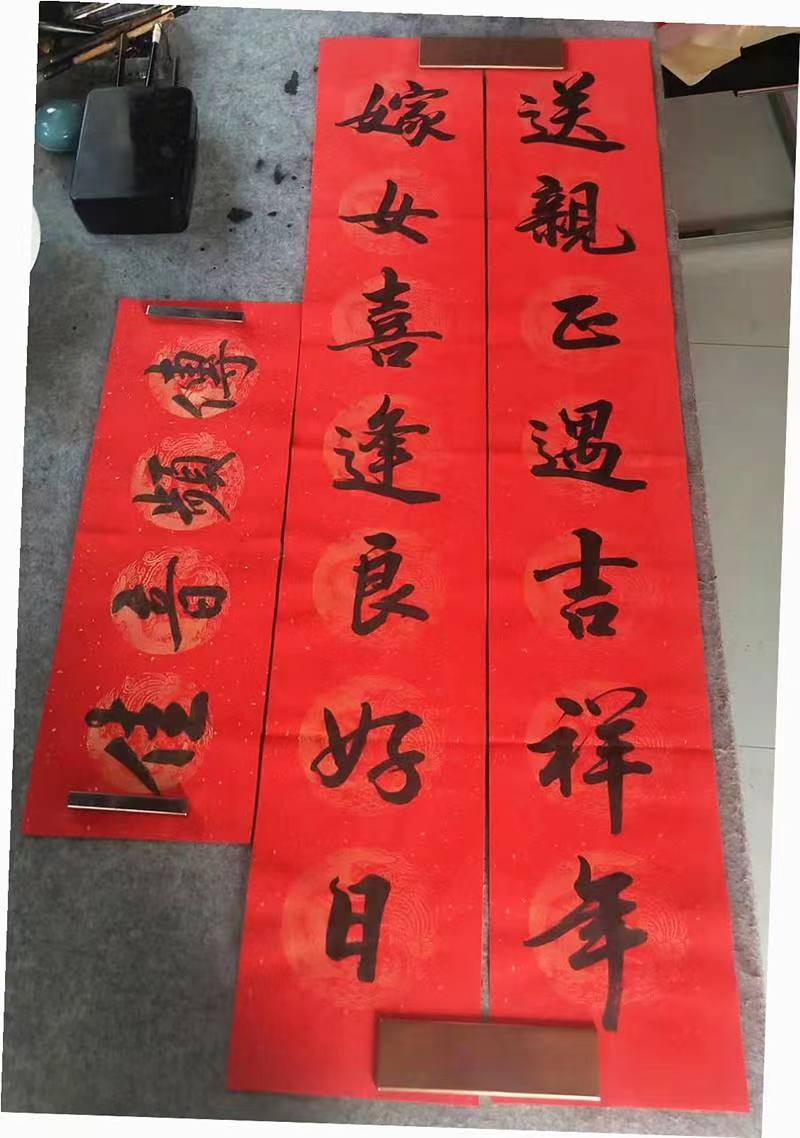 嫁女喜逢良好日
送親正遇吉祥年
佳音頻傳